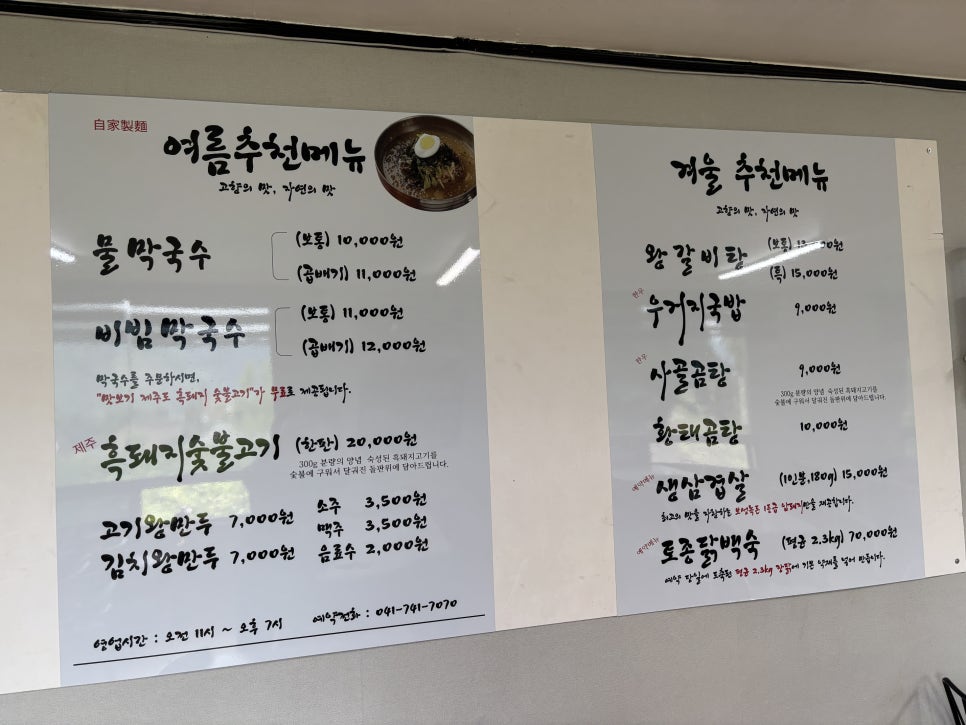 自家製麵
여름추천메뉴
고향의 맛, 자연의 맛
물막국수
(보통) 10,000원
(곱배기) 11,000원
비빔막국수
(보통) 11,000원
(곱배기) 12,000원
막국수를 주문하시면,
"맛보기 제주도 흑돼지 숯불고기"가 무료로 제공됩니다.
제주 흑돼지숯불고기 (한판) 20,000원
300g 분량의 양념 숙성된 흑돼지고기를
숯불에 구워서 달궈진 돌판위에 담아드립니다.
고기왕만두 7,000원 소주 3,500원
김치왕만두 7,000원 맥주 3,500원
음료수 2,000원
영업시간 : 오전 11시 ~ 오후 7시 예약전화 : 041-741-7070
겨울 추천메뉴
고향의 맛, 자연의 맛
왕갈비탕
(보통)
(특) 15,000원
한우 우거지국밥 9,000원
한우 사골곰탕 9,000원
300g 분량의 양념 숙성된 흑돼지고기를
숯불에 구워서 달궈진 돌판위에 담아드립니다.
황태곰탕 10,000원
예약메뉴 생삼겹살 (1인분,180g) 15,000원
최고의 맛을 자랑하는 보성녹돈 1등급 암돼지만을 제공합니다.
예약메뉴 토종닭백숙 (평균 2.3kg) 70,000원
예약 당일에 도축된 평균 2.3kg 장닭에 기본 약재를 넣어 만듭니다.